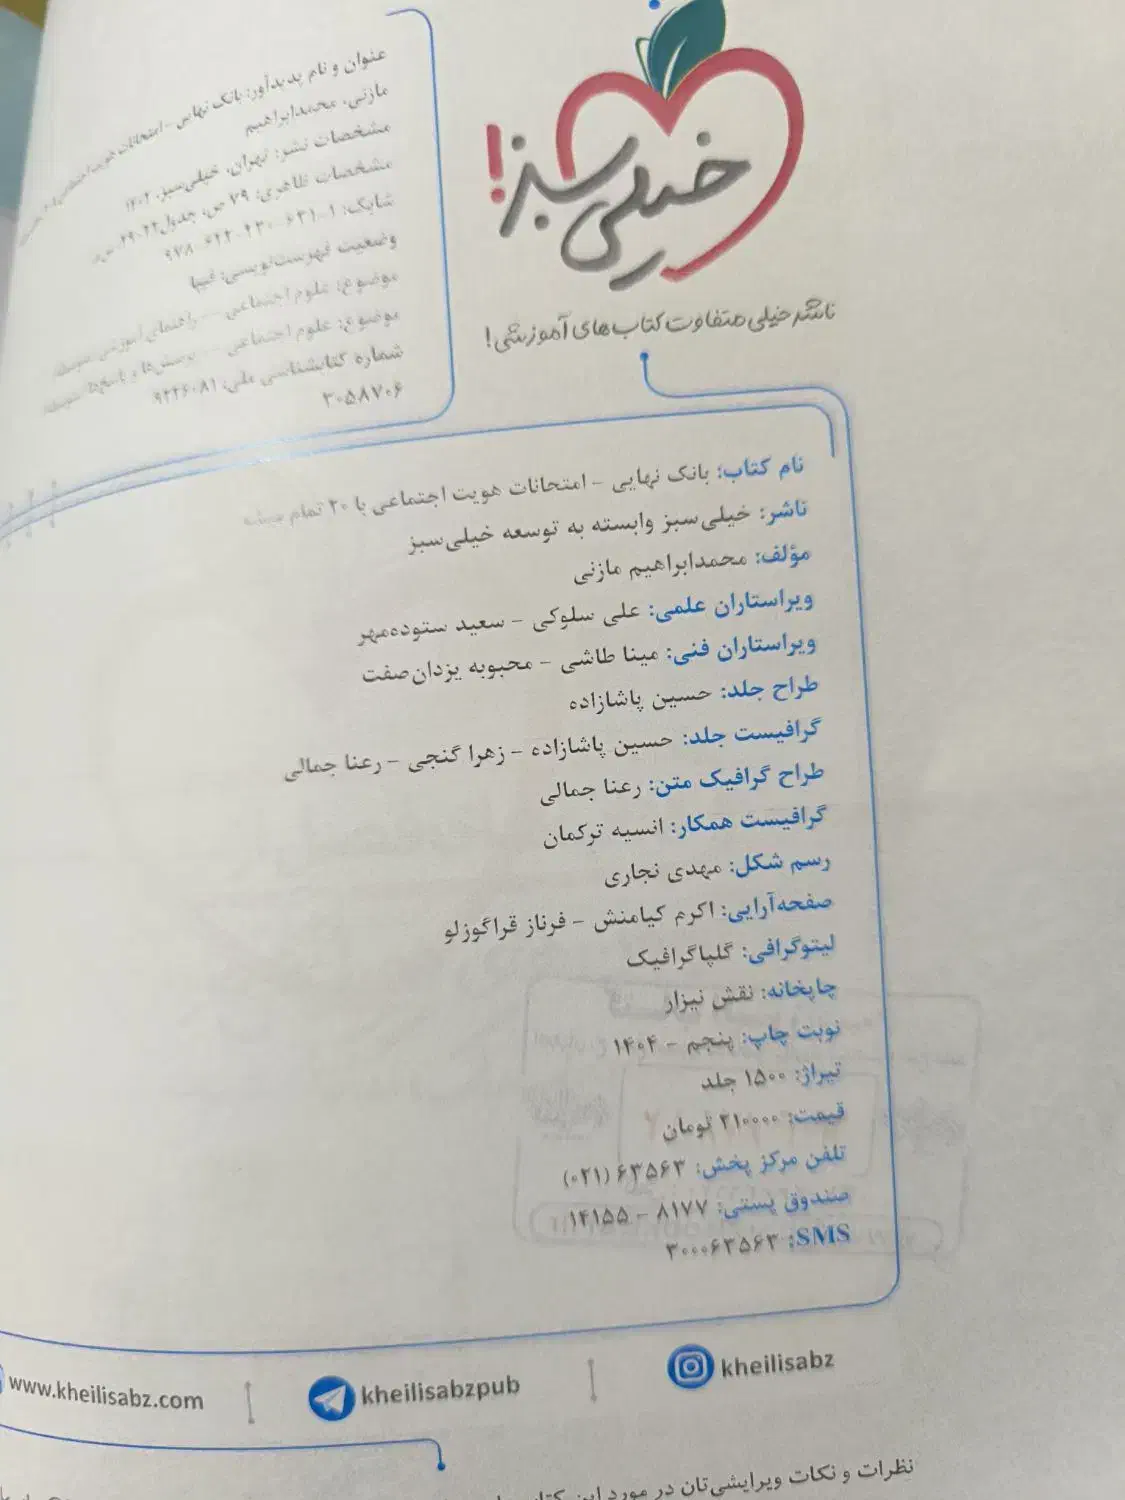 خیلی سبز!
ناشر خیلی متفاوت کتاب‌های آموزشی!
عنوان و نام پدیدآور: بانک نهایی - امتحانات هویت اجتماعی
مازنی، محمدابراهیم
مشخصات نشر: تهران، خیلی‌سبز، ۱۴۰۲
مشخصات ظاهری: ۷۹ ص، جدول ۲۲×۲۹
شابک: ۱-۶۳۱-۲۳۰-۶۲۲-۹۷۸
وضعیت فهرست‌نویسی: فیپا
موضوع: علوم اجتماعی -- راهنمای آموزشی
موضوع: علوم اجتماعی -- پرسش‌ها و پاسخ‌ها
شماره کتابشناسی ملی: ۹۲۲۶۰۸۱
۳۰۵۸۷۰۶
نام کتاب: بانک نهایی - امتحانات هویت اجتماعی با ۲۰ تمام میشه
ناشر: خیلی‌سبز وابسته به توسعه خیلی‌سبز
مؤلف: محمدابراهیم مازنی
ویراستاران علمی: علی سلوکی - سعید ستوده‌مهر
ویراستاران فنی: مینا طاشی - محبوبه یزدان‌صفت
طراح جلد: حسین پاشازاده
گرافیست جلد: حسین پاشازاده - زهرا گنجی - رعنا جمالی
طراح گرافیک متن: رعنا جمالی
گرافیست همکار: انسیه ترکمان
رسم شکل: مهدی نجاری
صفحه‌آرایی: اکرم کیامنش - فرناز قراگوزلو
لیتوگرافی: گلپاگرافیک
چاپخانه: نقش نیزار
نوبت چاپ: پنجم - ۱۴۰۴
تیراژ: ۱۵۰۰ جلد
قیمت: ۲۱۰۰۰۰ تومان
تلفن مرکز پخش: ۶۳۵۶۳ (۰۲۱)
صندوق پستی: ۸۱۷۷ - ۱۴۱۵۵
SMS: ۳۰۰۰۶۳۵۶۳
kheilisabz
kheilisabzpub
www.kheilisabz.com
نظرات و نکات ویرایشی‌تان در مورد این